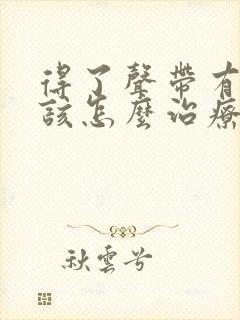 得了聲帶有
該怎麼治療
秋雲兮